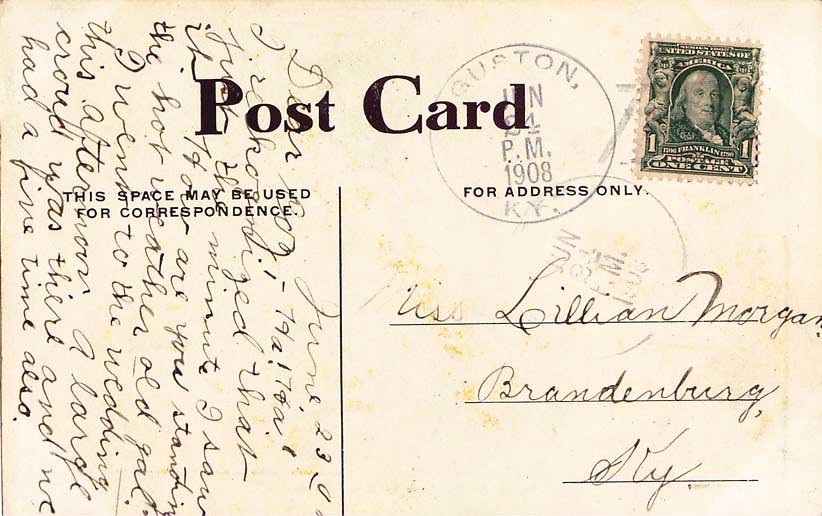 Post Card
THIS SPACE MAY BE USED
FOR CORRESPONDENCE.)
FOR ADDRESS ONLY.
GUSTON,
JUN
24
P.M.
1908
KY.
JUN
24
P.M.
1908
SERIES 1902
UNITED STATES OF
AMERICA
1 1706 FRANKLIN 1790 1
POSTAGE
ONE CENT
June, 23, 0
Dear ! - Ha! Ha!
I reckonized that
Just the minute I saw
it. How are you standin
the hot weather old gal.
I went to the wedding
this afternoon A large
croud was there and we
had a fine time also.
Miss Lillian Morgan,
Brandenburg,
Ky.